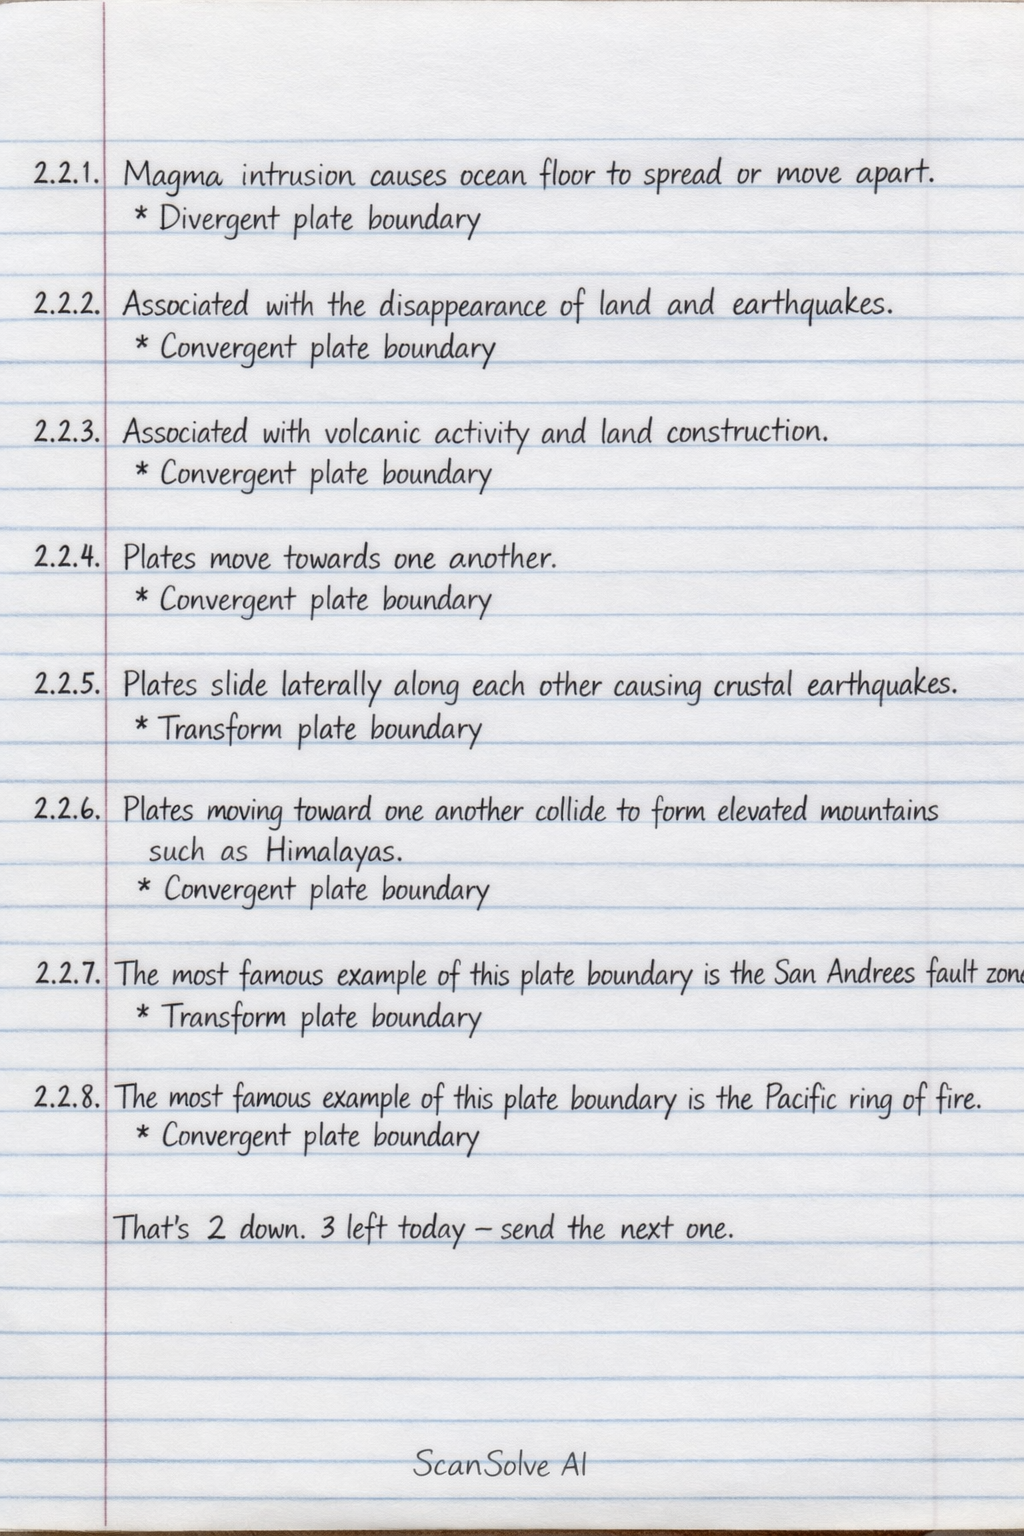 2.2.1. Magma intrusion causes ocean floor to spread or move apart.
* Divergent plate boundary
2.2.2. Associated with the disappearance of land and earthquakes.
* Convergent plate boundary
2.2.3. Associated with volcanic activity and land construction.
* Convergent plate boundary
2.2.4. Plates move towards one another.
* Convergent plate boundary
2.2.5. Plates slide laterally along each other causing crustal earthquakes.
* Transform plate boundary
2.2.6. Plates moving toward one another collide to form elevated mountains
such as Himalayas.
* Convergent plate boundary
2.2.7. The most famous example of this plate boundary is the San Andrees fault zone
* Transform plate boundary
2.2.8. The most famous example of this plate boundary is the Pacific ring of fire.
* Convergent plate boundary
That's 2 down. 3 left today – send the next one.
ScanSolve AI